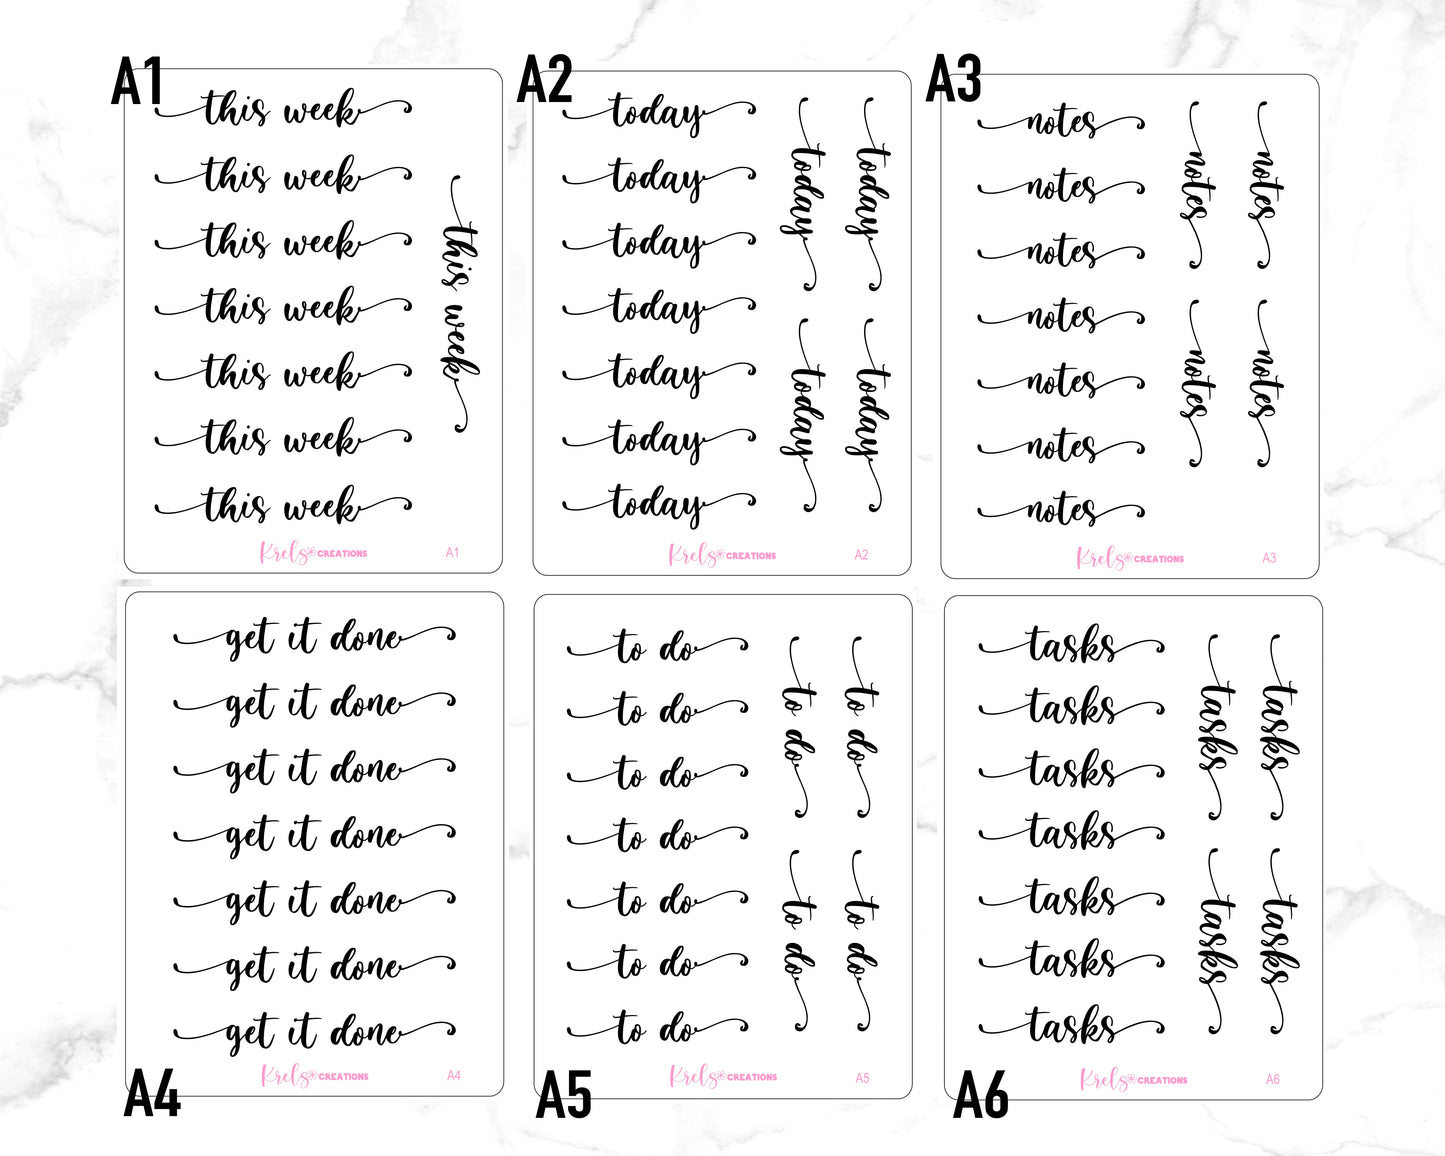 A1
this week
this week
this week
this week
this week
this week
this week
this week
Krels CREATIONS A1
A2
today
today
today
today
today
today
today
today
today
today
today
Krels CREATIONS A2
A3
notes
notes
notes
notes
notes
notes
notes
notes
notes
notes
notes
Krels CREATIONS A3
get it done
get it done
get it done
get it done
get it done
get it done
get it done
Krels CREATIONS A4
A4
to do
to do
to do
to do
to do
to do
to do
to do
to do
to do
to do
Krels CREATIONS A5
A5
tasks
tasks
tasks
tasks
tasks
tasks
tasks
tasks
tasks
tasks
tasks
Krels CREATIONS A6
A6